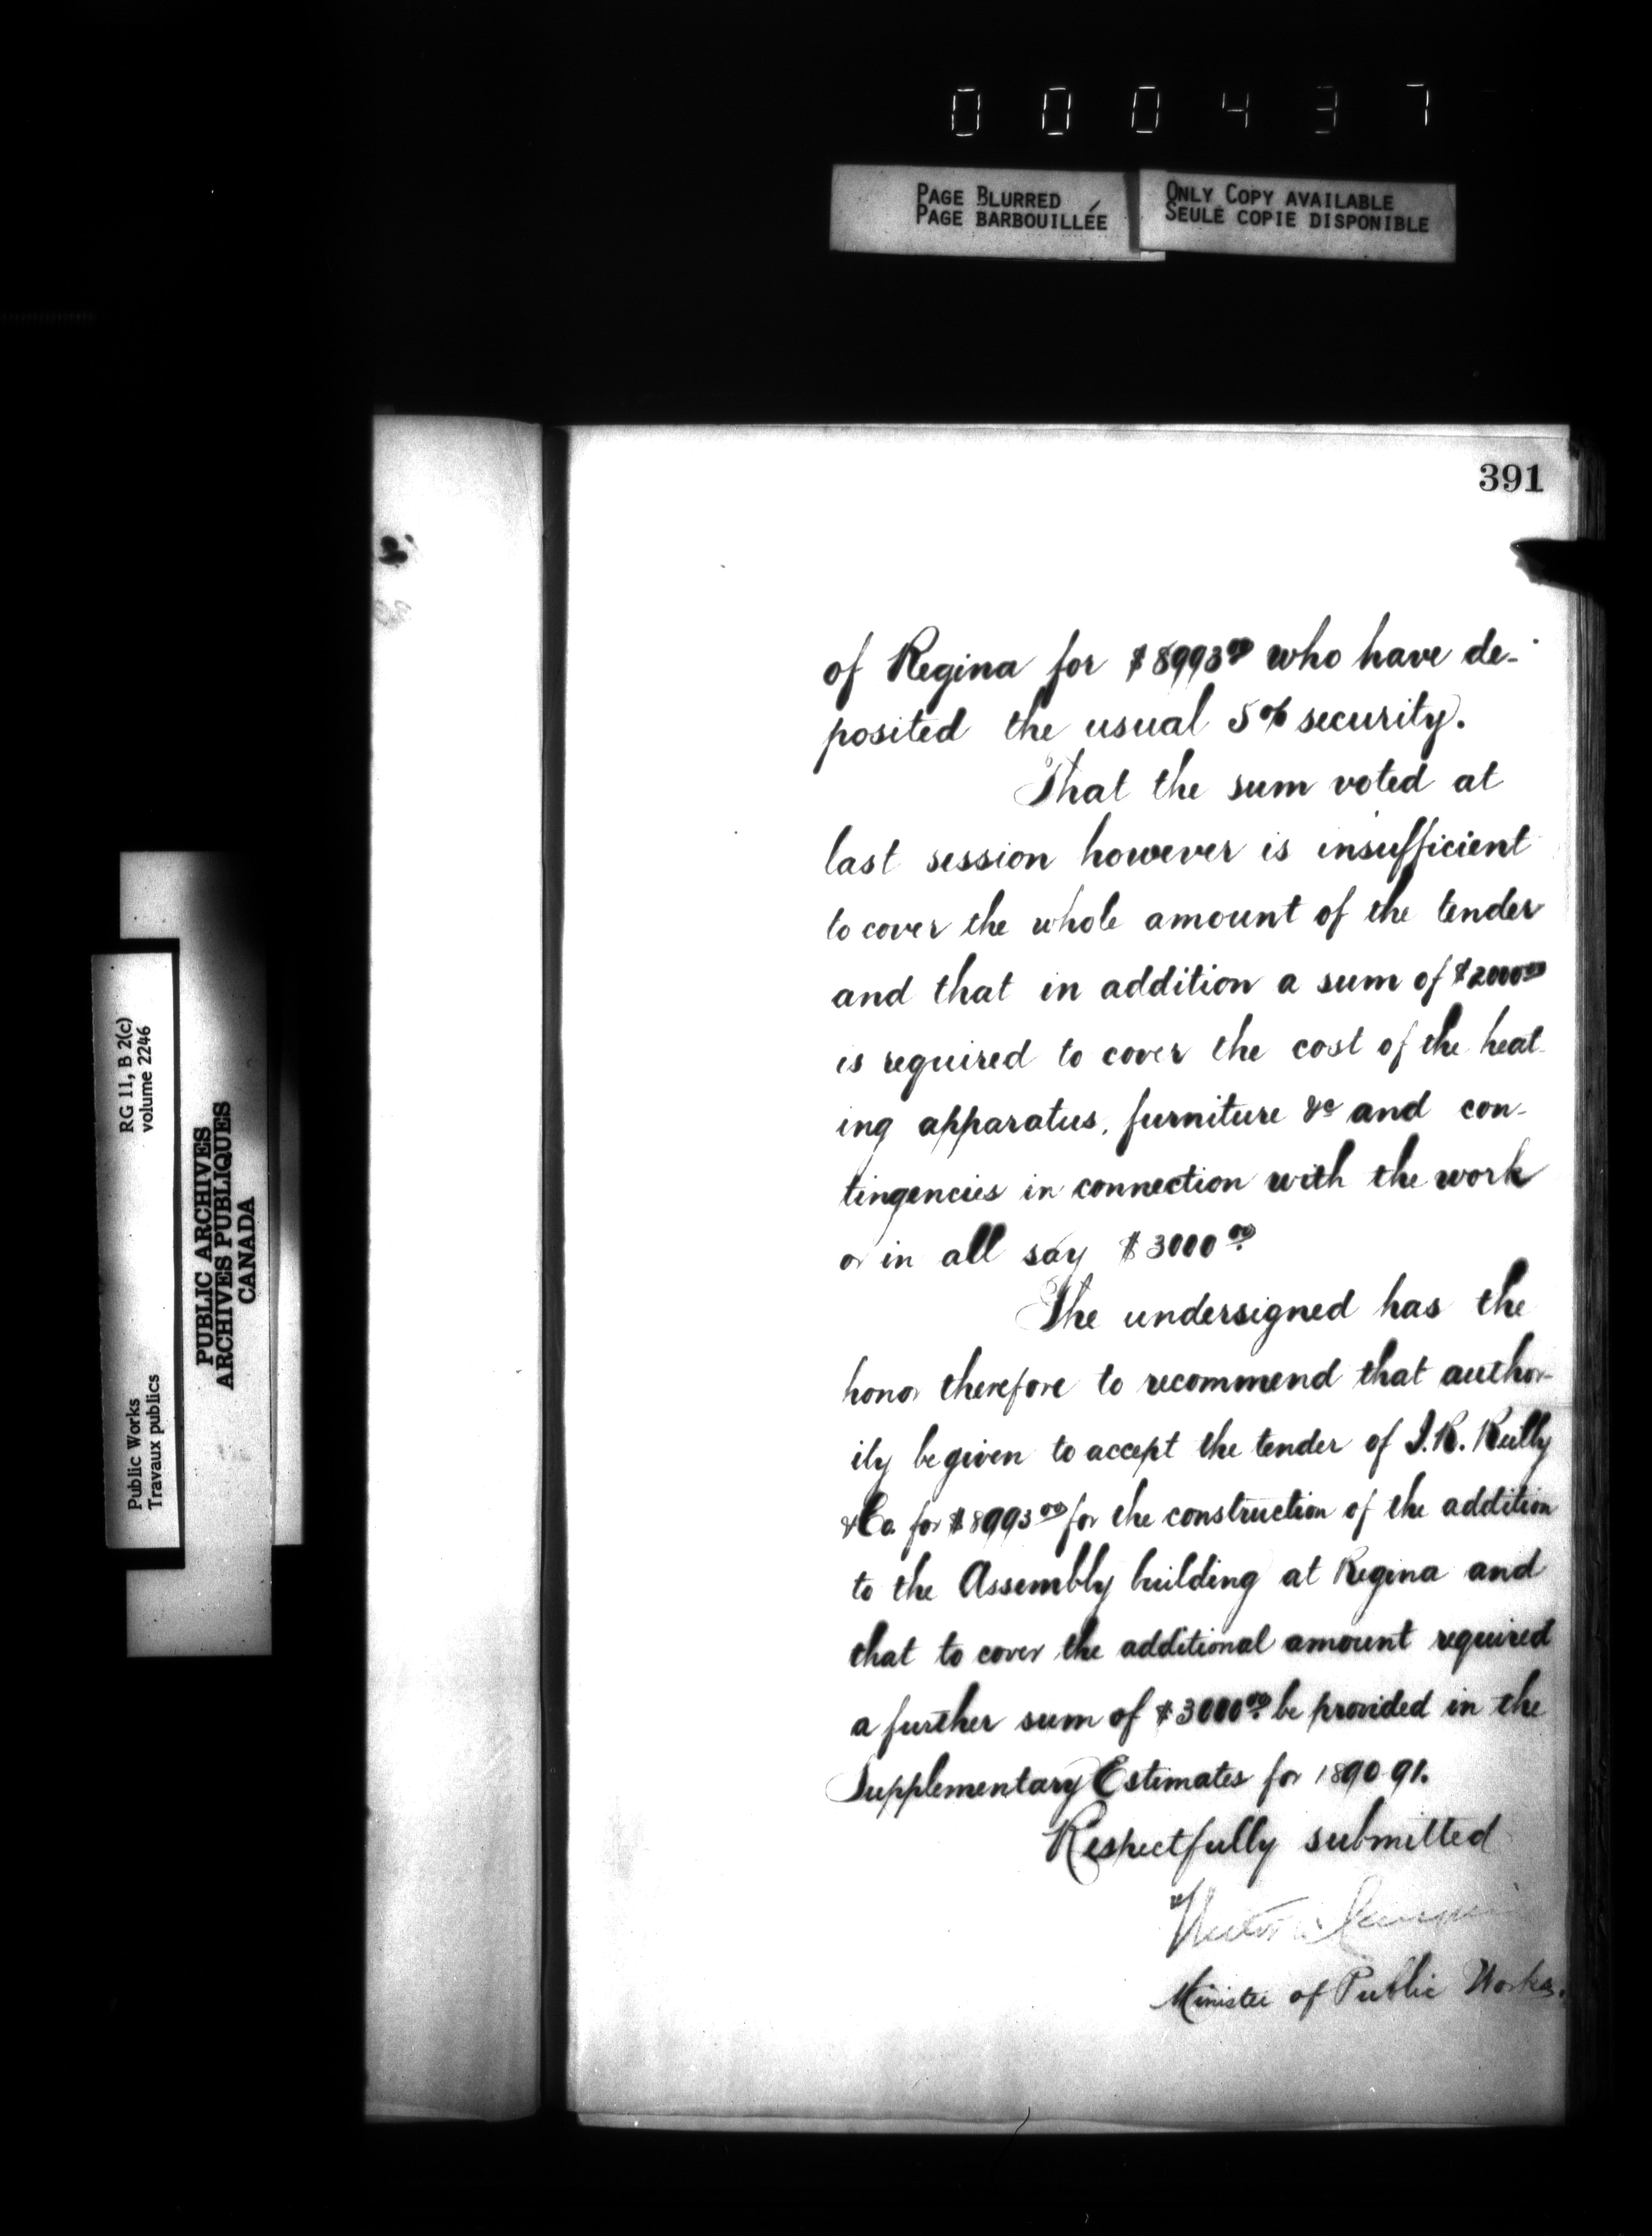 000437
PAGE BLURRED
PAGE BARBOUILLÉE
ONLY COPY AVAILABLE
SEULE COPIE DISPONIBLE
391
of Regina for $8993.00 who have de-
posited the usual 5% security.
That the sum voted at
last session however is insufficient
to cover the whole amount of the tender
and that in addition a sum of $2000.00
is required to cover the cost of the heat-
ing apparatus, furniture &c and con-
tingencies in connection with the work
or in all say $3000.00
The undersigned has the
honor therefore to recommend that author-
ity be given to accept the tender of J.R. Reilly
& Co. for $8993.00 for the construction of the addition
to the Assembly building at Regina and
that to cover the additional amount required
a further sum of $3000.00 be provided in the
Supplementary Estimates for 1890 91.
Respectfully submitted
Minister of Public Works.
RG 11, B 2(c)
volume 2246
Public Works
Travaux publics
PUBLIC ARCHIVES
ARCHIVES PUBLIQUES
CANADA